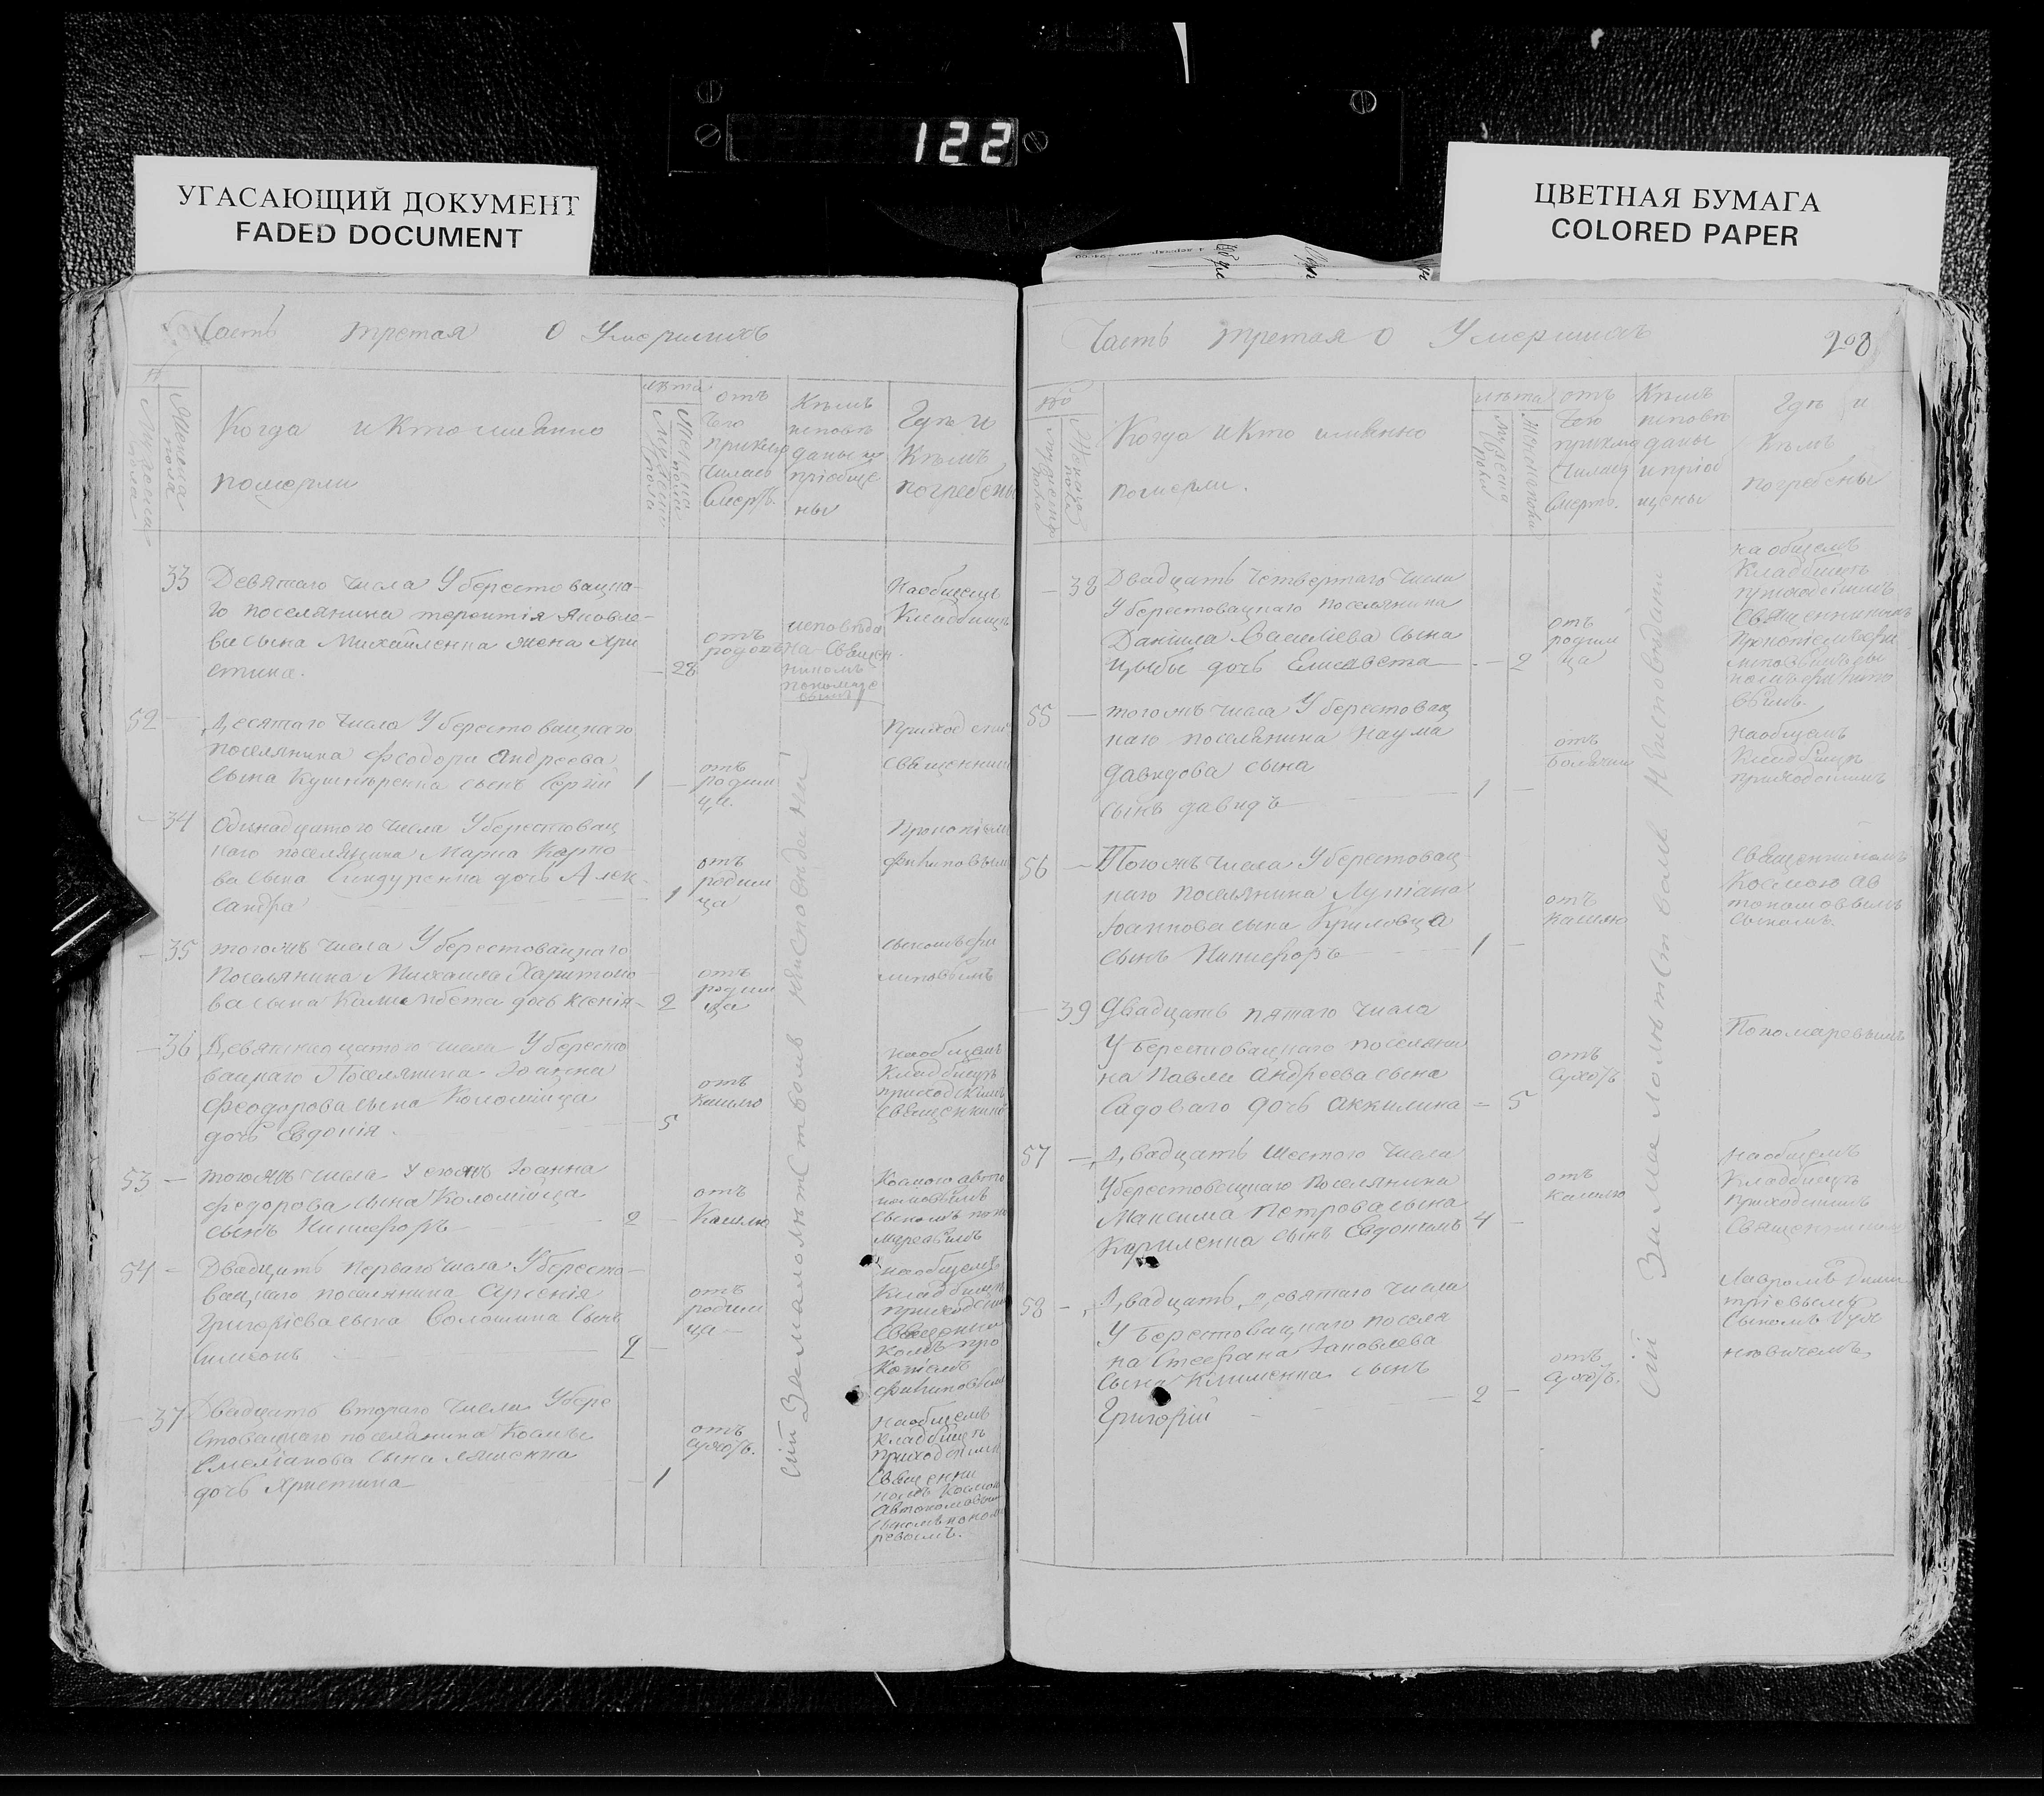 122
УГАСАЮЩИЙ ДОКУМЕНТ
FADED DOCUMENT
ЦВЕТНАЯ БУМАГА
COLORED PAPER
Часть третая О Умершихъ
Когда и кто имянно
померли
лѣта
отъ
чего
приклю
чилась
Смерть
Кѣмъ
исповѣ
даны и
пріобще
ны
Гдѣ и
Кѣмъ
погребены
33 Девятаго числа У берестовацка-
го поселянина терентія Яковле-
ва сына Михайленка жена Хри
стина. 28
исповѣда
на Священ
никомъ
пономаре
вымъ
На общемъ
Кладбищѣ
52 Десятаго числа У берестовацкаго
поселянина Феодора Андреева
сына Кушнѣренка сынъ Сергій 1
отъ
родим
ца.
34 Одинадцатого числа У берестовац
каго поселянина Марка Карпо
ва сына дочь Алек
сандра 1
отъ
родим
ца
35 тогожъ числа У берестовацкаго
Поселянина Михаила Харитоно
ва сына дочь Ксенія 2
отъ
родим
ца
36 Девятнадцатого числа У бересто
вацкаго Поселянина Іоанна
Феодорова сына Коломійца
дочь Евдокія 5
отъ
кашлю
на общемъ
Кладбищѣ
приходскимъ
Священнико
53 тогожъ числа У егожъ Іоанна
Федорова сына Коломійца
сынъ Никифоръ 2
отъ
Кашлю
Космою авто
номовымъ
сыномъ поно
маревымъ
54 Двадцать перваго числа У бересто
вацкаго поселянина Арсенія
Григоріева сына Волошина Сынъ
Симеонъ 2
отъ
родим
ца
на общемъ
Кладбищѣ
37 Двадцать втораго числа У бере
стовацкаго поселянина Космы
Емеліанова сына Ляшенка
дочь Христина 1
отъ
сухотъ.
на общемъ
кладбищѣ
приходским
Священни
комъ Космою
Автономовым
сыномъ поном
ревымъ.
сій За малолѣтствомъ неисповѣдани
Часть третая О Умершихъ 208
Когда и кто имянно
померли.
лѣта
отъ
чего
приклю
чилась
Смерть.
Кѣмъ
исповѣ
даны
и пріоб
щены
Гдѣ и
Кѣмъ
погребены
38 Двадцать четвертаго числа
У берестовацкаго поселянина
Даніила Василіева Сына
Цыбы дочь Елисавета 2
отъ
родим
ца
на общемъ
Кладбищѣ
приходскимъ
Священникомъ
55 тогожъ числа У берестовац
каго поселянина Наума
давидова сына
сынъ давидъ 1
на общемъ
Кладбищѣ
приходскимъ
56 Тогожъ числа У берестовац
каго поселянина Лукіана
Іоаннова сына Криловца
сынъ Никифоръ 1
отъ
кашлю
Священникомъ
Космою ав
тономовымъ
сыномъ.
39 Двадцать пятаго числа
У берестовацкаго поселяни
на Павла Андреева сына
Садоваго дочь Аккилина 5
отъ
сухотъ
Пономаревымъ
57 Двадцать шестого числа
У берестовацкаго поселянина
Максима Петрова сына
Кириленка сынъ Евдокимъ 4
отъ
кашлю
на общемъ
Кладбищѣ
приходскимъ
Священником
58 Двадцать девятаго числа
У берестовацкаго поселя
на Стефана Іаковлева
сына Клименка сынъ
Григорій 2
отъ
сухотъ.
Лавромъ Дими
тріевымъ
Сыномъ
сій За малолѣтствомъ неисповѣдани